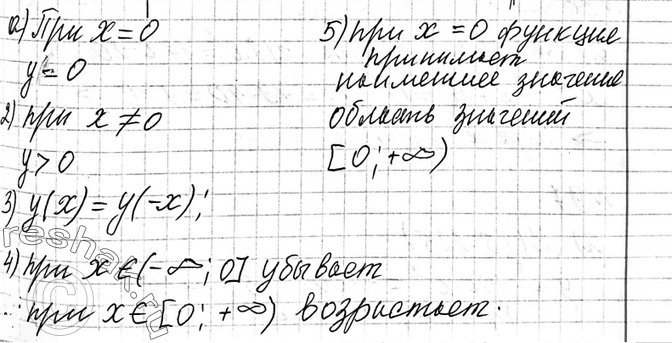 а) При x = 0
y = 0
2) при x ≠ 0
y > 0
3) y(x) = y(-x);
4) при x ∈ (-∞; 0] убывает
при x ∈ [0; +∞) возрастает.
5) при x = 0 функция
принимает
наименьшее значение
область значений
[0; +∞)
reshak.ru